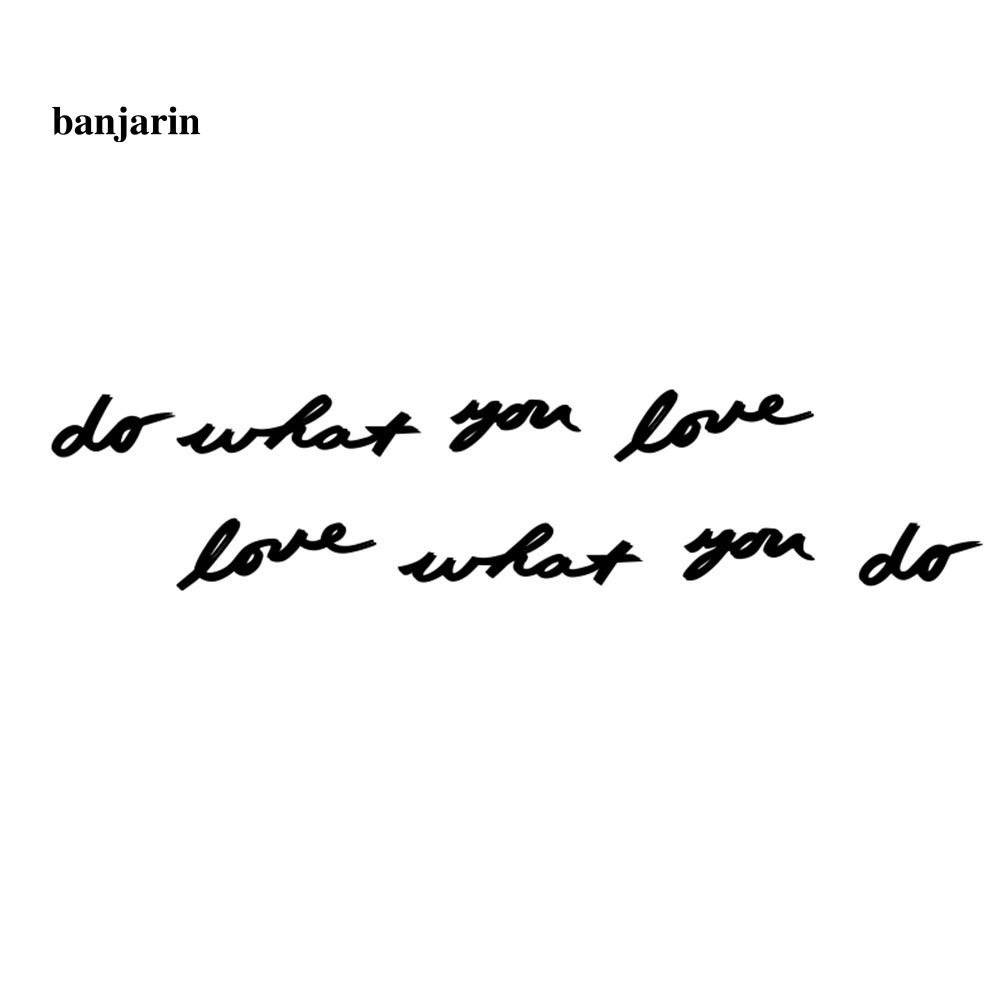 banjarin
do what you love
love what you do